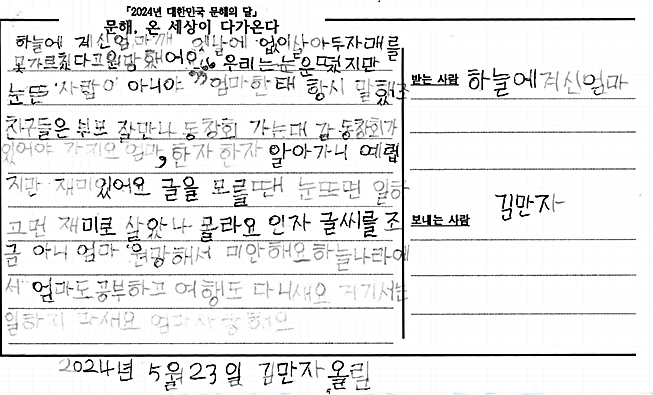 「2024년 대한민국 문해의 달」
문해, 온 세상이 다가온다
하늘에 계신엄마께 옛날에 없이살아두자매를
못가르쳤다고원망했어요 우리는눈은떴지만
눈뜬 사람이 아니야 " 엄마한태 항시 말했죠
친구들은 쉬프 잘만나 동창회 가는대 감 동창회가
있어야 가지요 엄마, 한자 한자 알아가니 예렵
지만 재미있어요 글을 모를때는 눈뜨면 일하
고먼 재미로 살았나 몰라요 인자 글씨를 조
금 아니 엄마 원망해서 미안해요하늘나라에
서 엄마도공부하고 여행도 다니새요 거기서는
일하지 마새요 엄마사랑해요
받는 사람 하늘에계신엄마
김만자
보내는 사람
2024년 5월 23일 김만자 올림